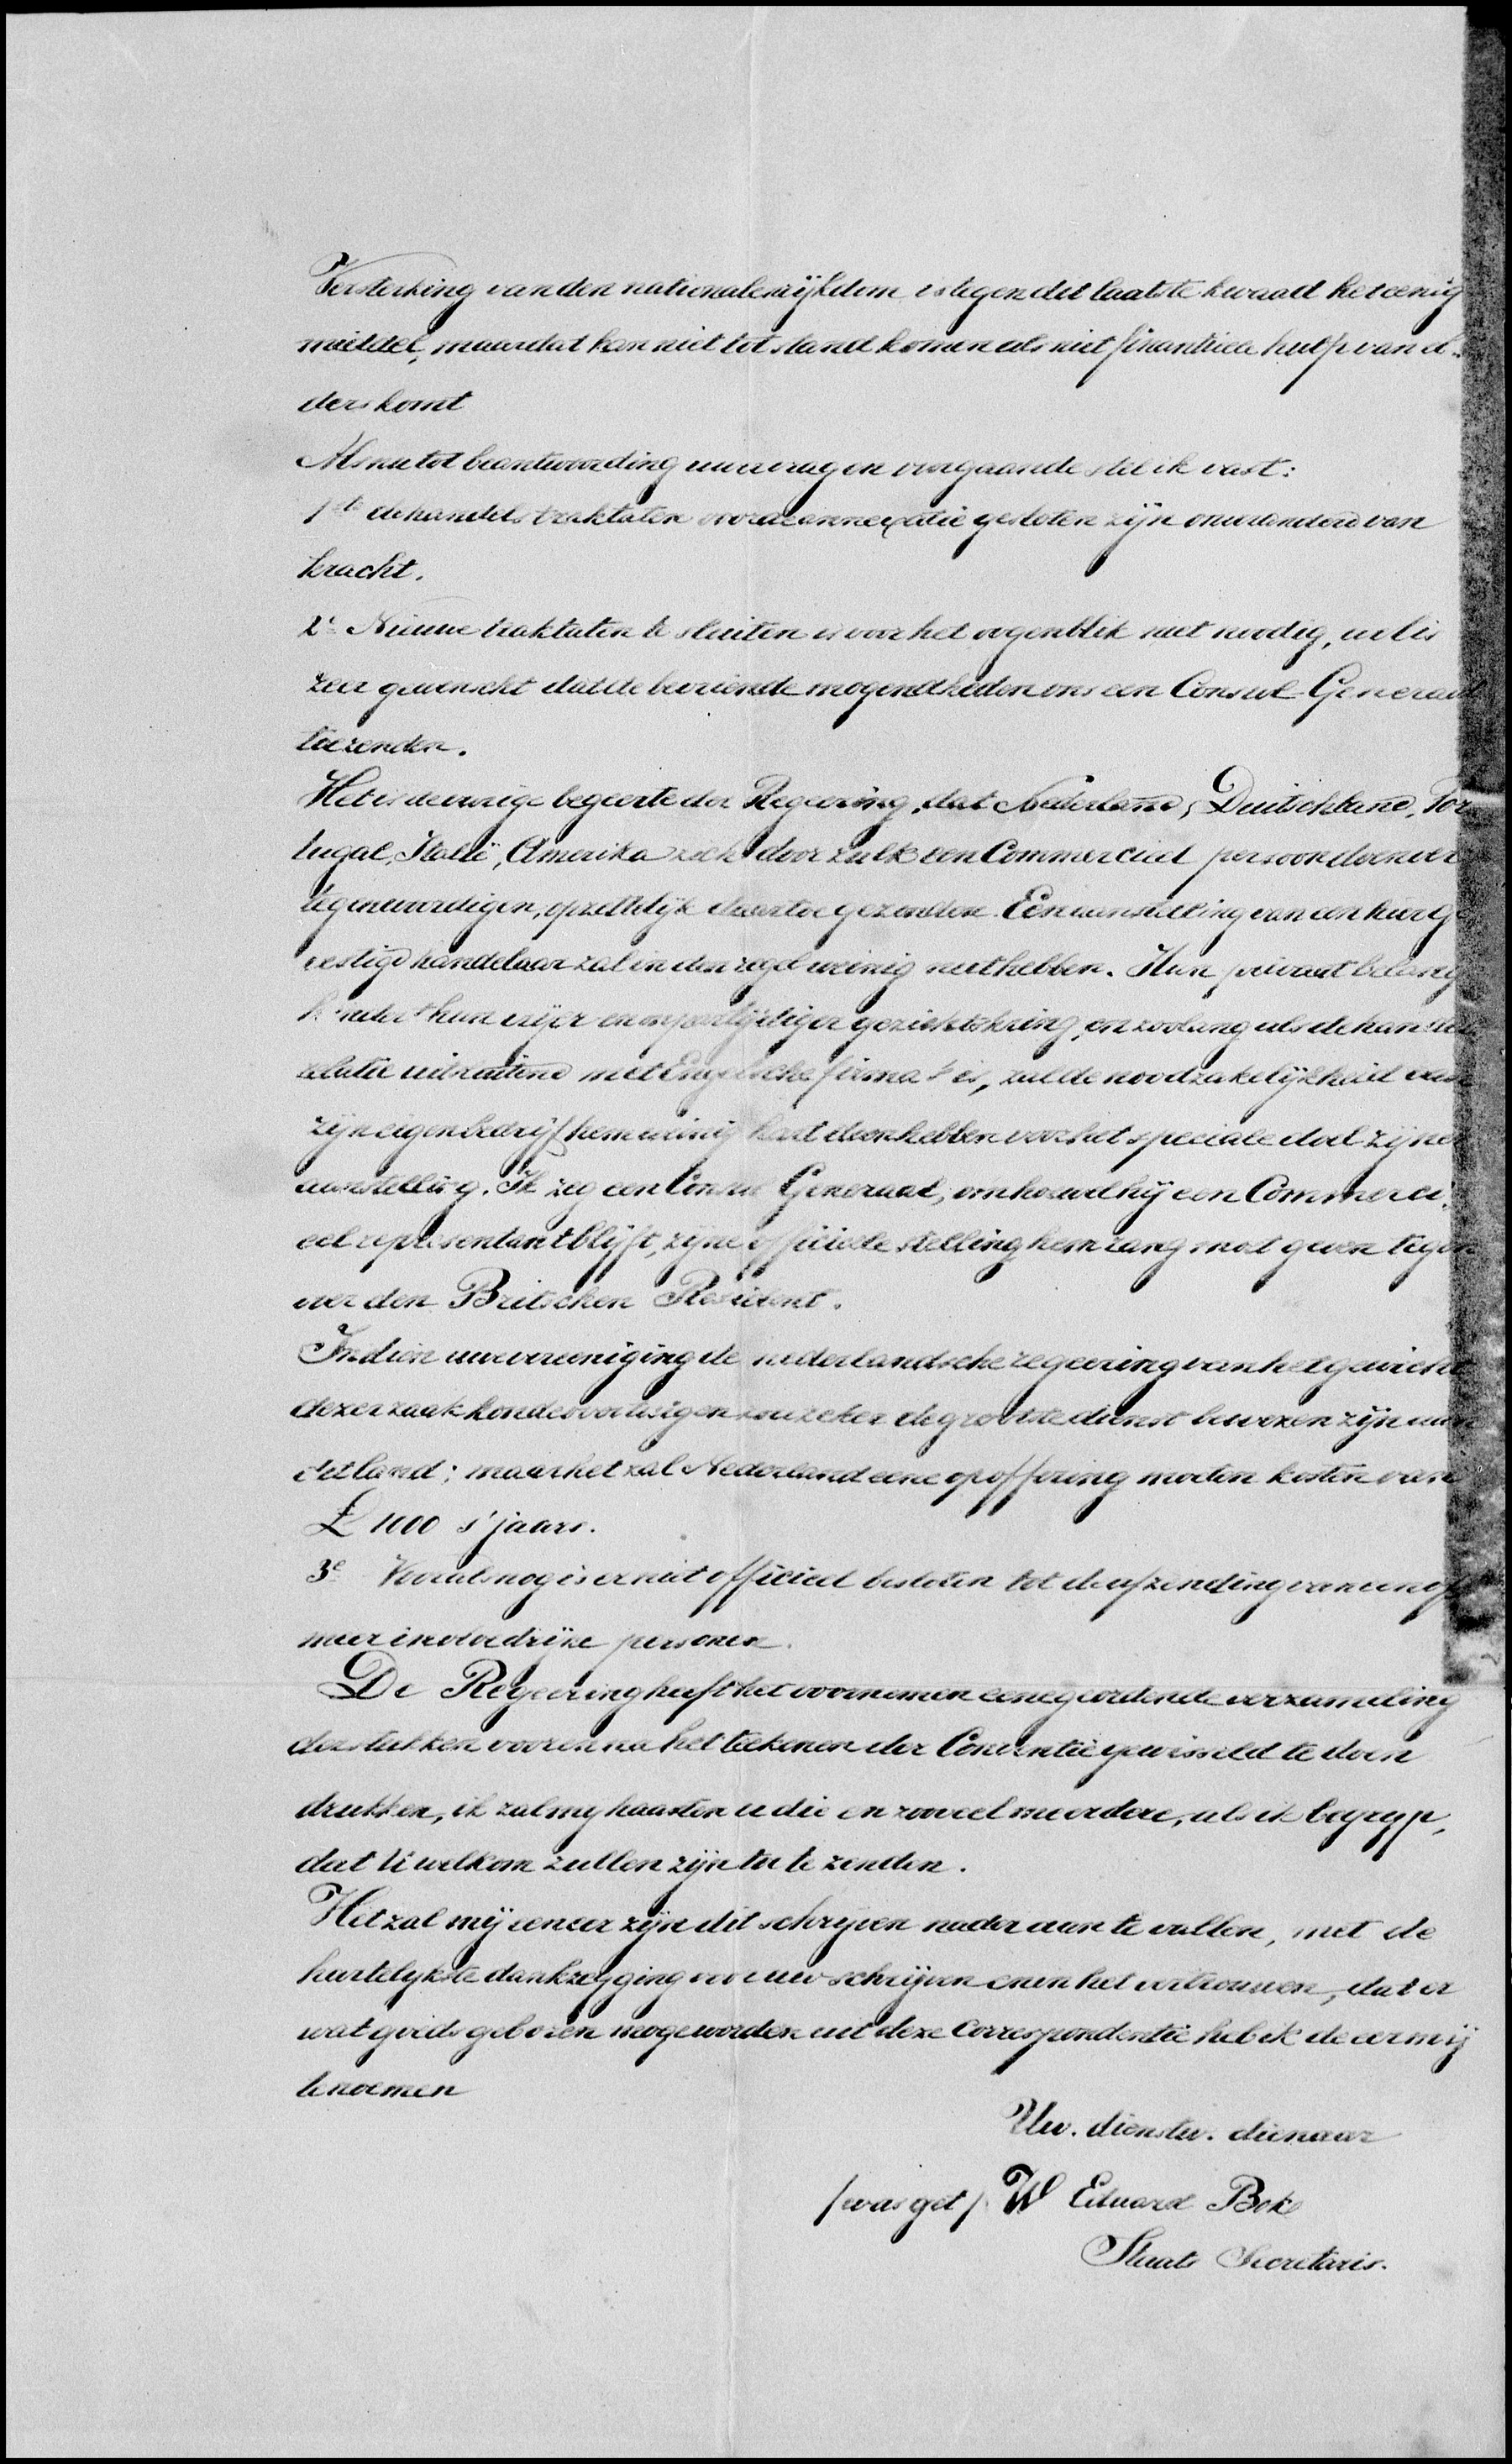 Versterking van den nationalen rijkdom is tegen dit laatste kwaad het eenig
middel, maar dat kan niet tot stand komen als niet financieele hulp van el-
ders komt
Als nu tot beantwoording uwer vragen voorgaande stel ik vast:
1ste de handels traktaten voor de annexatie gesloten zijn onveranderd van
kracht.
2e Nieuwe traktaten te sluiten is voor het oogenblik niet noodig, wel is
zeer gewenscht dat de bevriende mogendheden ons een Consul-Generaal
toezenden.
Het is de vurige begeerte der Regeering, dat Nederland, Duitschland, Por-
tugal, Italië, Amerika zich door zulk een Commercieel persoon doen ver
tegenwoordigen, opzettelijk daartoe gezonden. Een aanstelling van een hier ge
vestigd handelaar zal in den regel weinig nut hebben. Hun privaat belang
hindert hun vrijer en onpartijdiger gezichtskring, en zoolang als de handels
relatie uitsluitend met Engelsche firma's is, zal de noodzakelijkheid van
zijn eigen bedrijf hem weinig hart doen hebben voor het speciale doel zijner
aanstelling. Ik zeg een Consul Generaal, om hoewel hij een Commerci-
eel representant blijft, zijne officieele stelling hem rang moet geven tegen
over den Britschen Resident.
Indien uwe vereeniging de nederlandsche regeering van het gewicht
dezer zaak konde overtuigen zou zeker de grootste dienst bewezen zijn aan
dit land; maar het zal Nederland eene opoffering moeten kosten van
£ 1000 s'jaars.
3e Vooralsnog is er niet officieel besloten tot de afzending van een of
meer invloedrijke personen.
De Regeering heeft het voornemen eene geordende verzameling
der stukken voor en na het teekenen der Conventie gewisseld te doen
drukken, ik zal my haasten u die en zooveel meerdere, als ik begryp,
dat U welkom zullen zijn toe te zenden.
Het zal mij een eer zijn dit schrijven nader aan te vullen, met de
hartelykste dankzegging voor uw schrijven en in het vertrouwen, dat er
wat goeds geboren moge worden uit deze Correspondentie heb ik de eer mij
te noemen
Uw. dienstw. dienaar
/was get/. W Eduard Bok
Staats Secretaris.